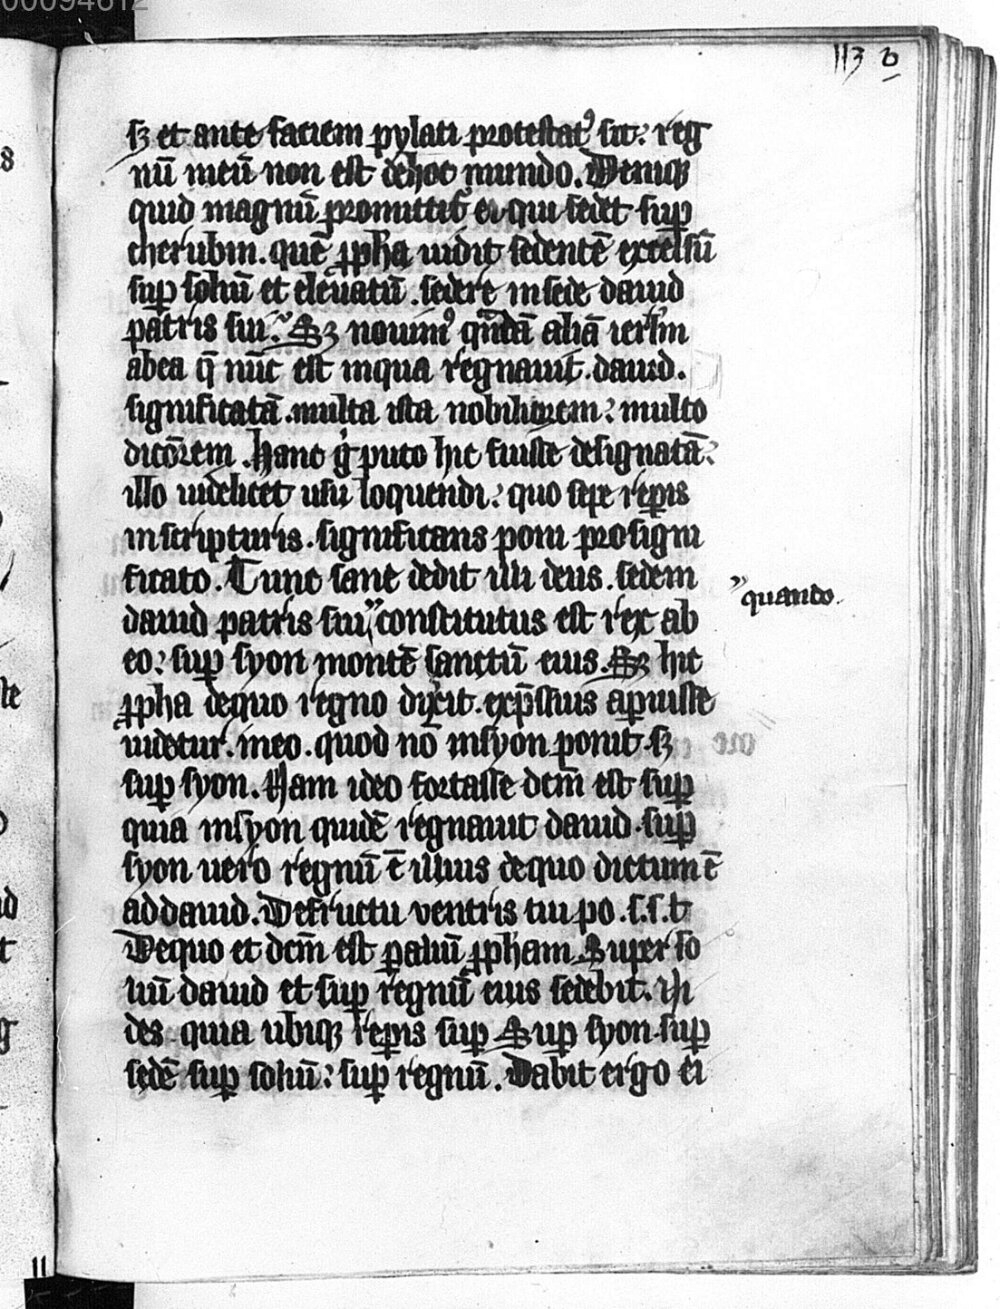 00094612
113 b
sꝫ et ante faciem pylati protestatꝰ sit. reg
nū meū non est dehoc mundo. Deniqꝫ
quid magnū promittit᷑ ei qui sedet suꝑ
cherubin. quē ꝓpha uidit sedentē excelsū
suꝑ soliū et eleuatū. sedere insede dauid
patris sui. Sꝫ nouimꝰ quādā aliā ierlm̄
abea q̄ nūc est inqua regnauit. dauid.
significatā. multa ista nobiliorem. multo
ditiōrem. Hanc g̊ puto hic fuisse designatā.
illo uidelicet usu loquendi. quo sepe reꝑis
inscripturis. significans poni prosigni
ficato. Tunc sane dedit illi deus. sedem
dauid patris sui constitutus est rex ab
eo. suꝑ syon montē sanctū eius. Sꝫ hic
" quando.
ꝓpha dequo regno dixit. exp̄ssius aꝑuisse
uidetur. ineo. quod nō insyon ponit sꝫ
suꝑ syon. Nam ideo fortasse dcm̄ est suꝑ
quia insyon quidē regnauit dauid. suꝑ
syon uero regnū ē illius dequo dictum ē
addauid. Defructu ventris tui po. s. s. t
Dequo et dcm̄ est ꝑaliū ꝓpham. Super so
liū dauid et suꝑ regnū eius sedebit. Ui
des quia ubiqꝫ reꝑis suꝑ. Suꝑ syon. suꝑ
sedē suꝑ soliū. suꝑ regnū. Dabit ergo ei